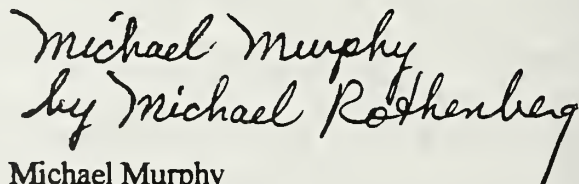 Michael Murphy
by Michael Rothenberg
Michael Murphy